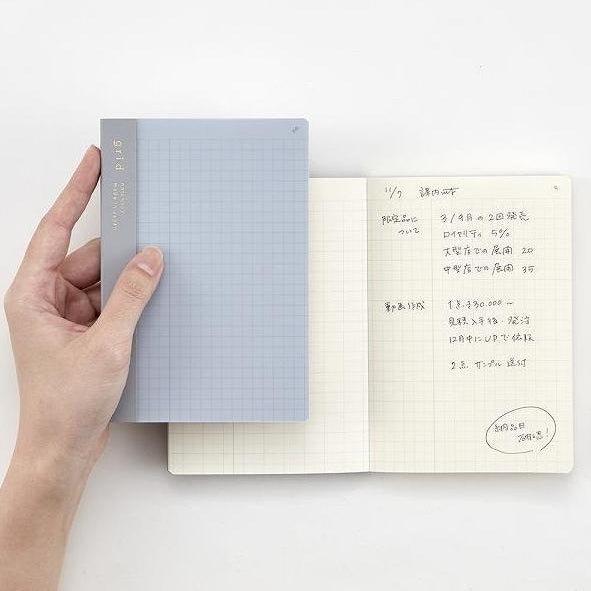 grid
11/7 課内MT
限定品に
ついて
3/9月の2回発売
ロイヤリティ 5%
大型店での展開 20
中型店での展開 35
動画作成
1点 ¥30,000~
見積入手後、発注
12月中にUPで依頼
2点 サンプル送付
納品日
確認!